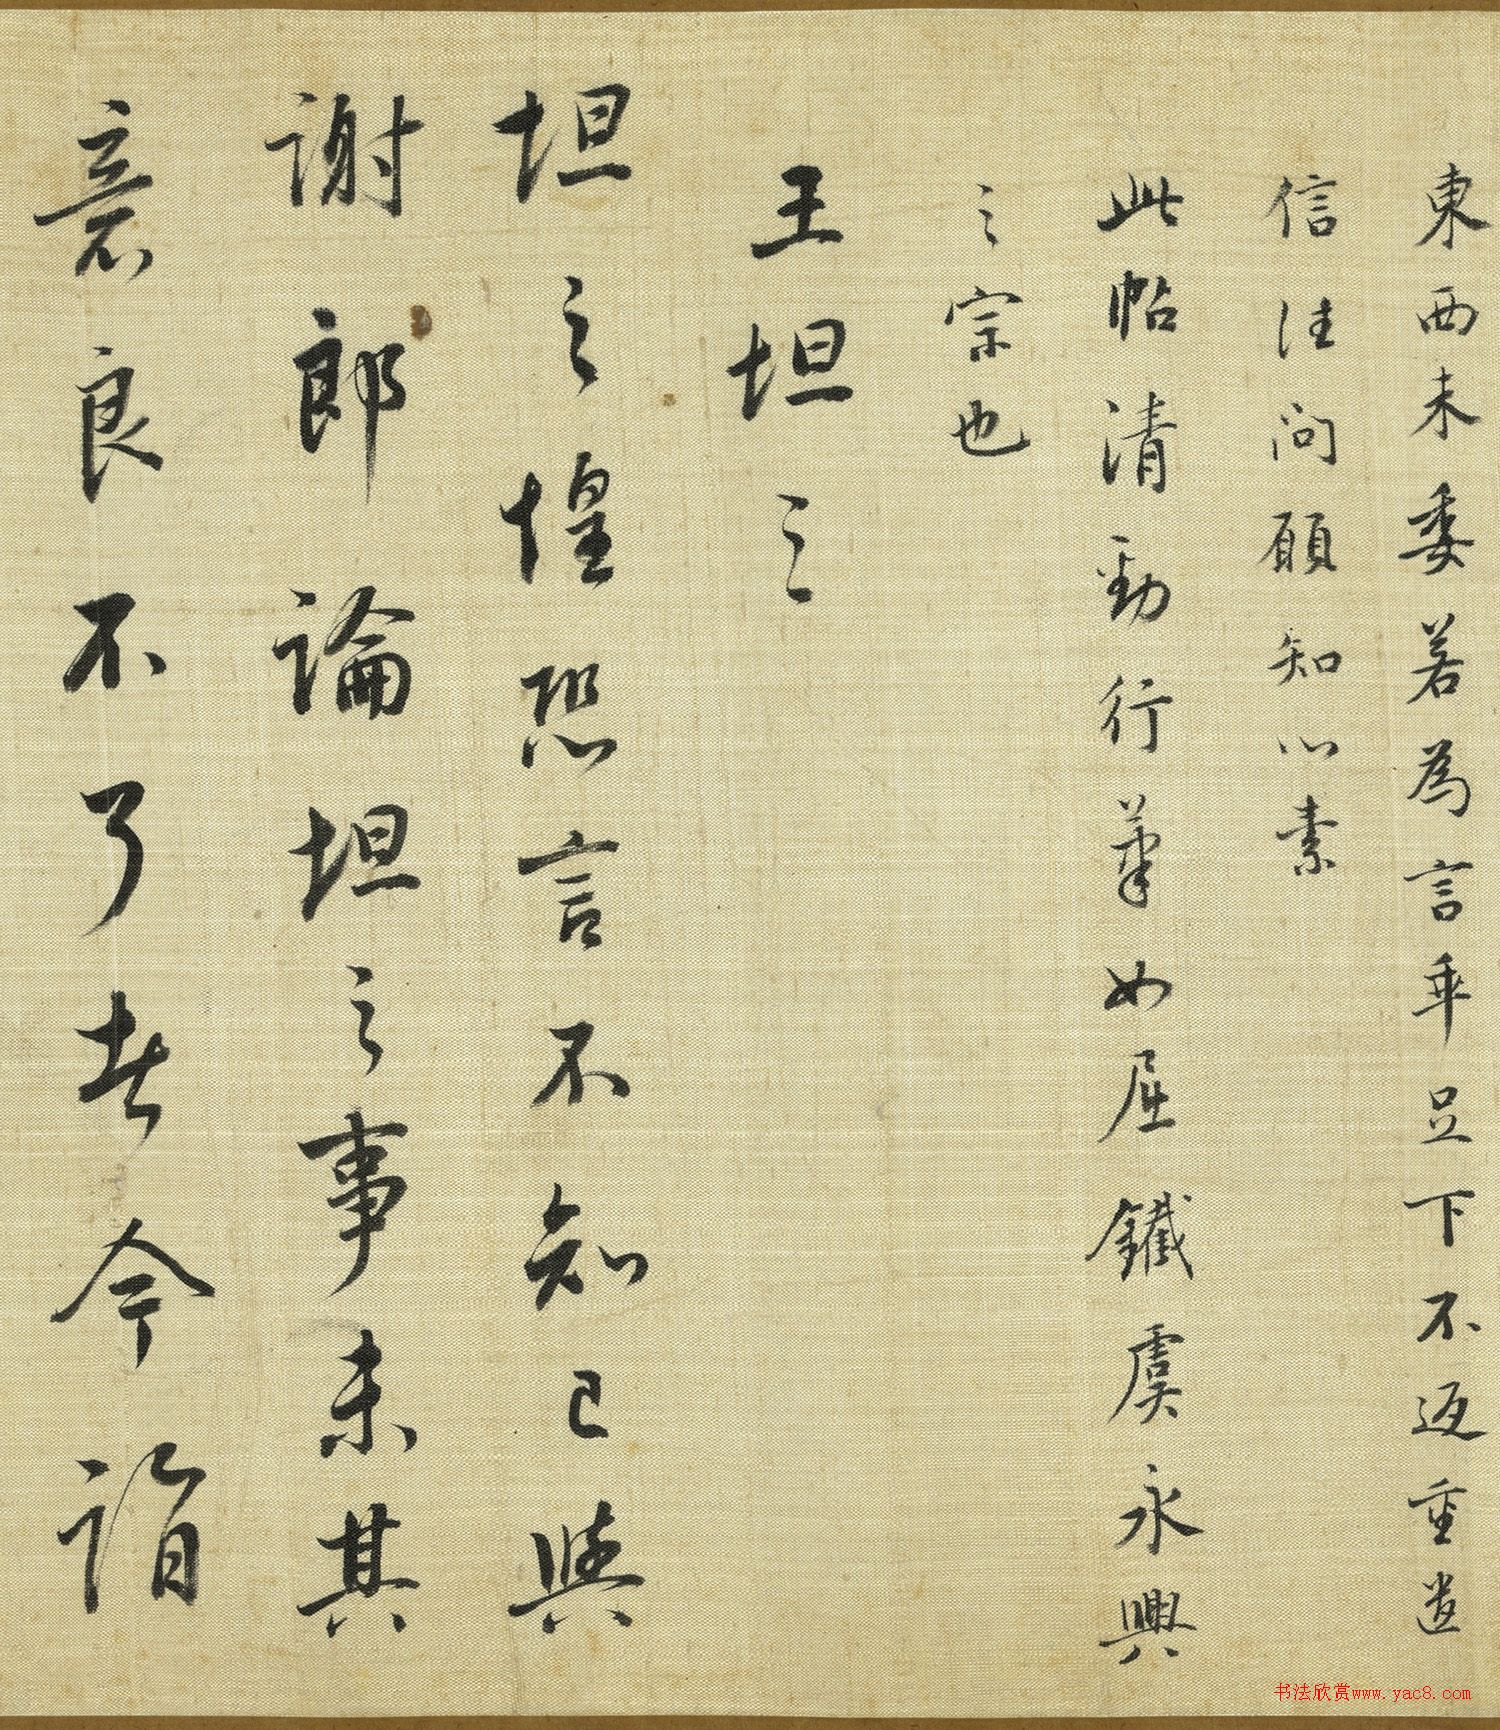 東西未委若為言乖足下不返重遣
信往問願知心素
此帖清勁行筆如屈鐵虞永興
之宗也
王坦之
坦之惶恐言不知已與
謝郎論坦之事未其
意良不了者今詣
书法欣赏www.yac8.com